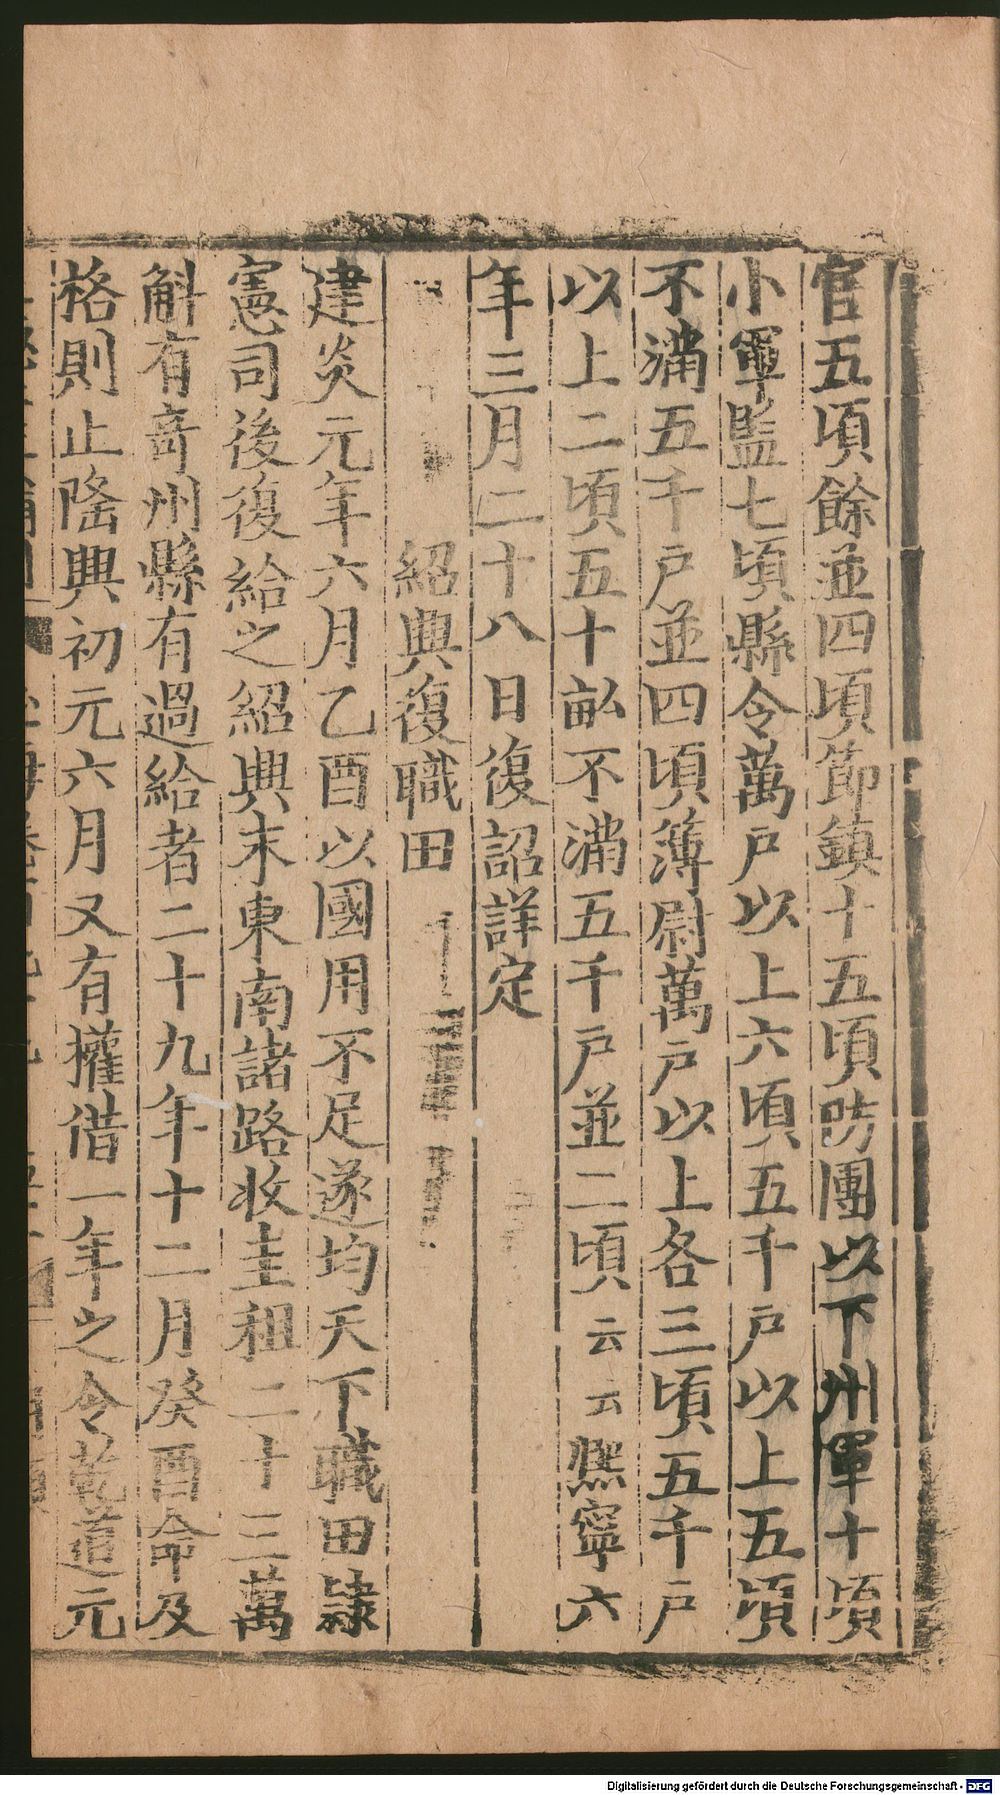 官五頃餘並四頃節鎮十五頃防團以下州軍十頃
小軍監七頃縣令萬戶以上六頃五千戶以上五頃
不滿五千戶並四頃簿尉萬戶以上各三頃五千戶
以上二頃五十畝不滿五千戶並二頃云云熈寧六
年三月二十八日復詔詳定
紹興復職田
建炎元年六月乙酉以國用不足遂均天下職田隷
憲司後復給之紹興末東南諸路收圭租二十三萬
斛有奇州縣有過給者二十九年十二月癸酉命及
格則止隆興初元六月又有權借一年之令乾道元
Digitalisierung gefördert durch die Deutsche Forschungsgemeinschaft - DFG